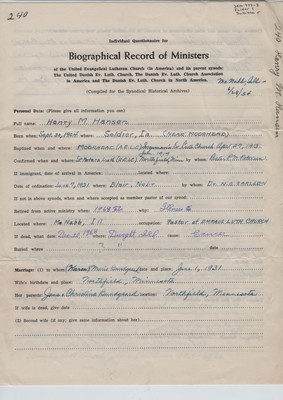 240
240 Henry M Hansen
Individual Questionnaire for
Biographical Record of Ministers
of the United Evangelical Lutheran Church (in America) and its parent synods:
The United Danish Ev. Luth. Church, The Danish Ev. Luth. Church Association
in America and The Danish Ev. Luth. Church in North America.
(Compiled for the Synodical Historical Archives)
Personal Data: (Please give all information you can)
Full name: Henry M. Hansen
Born where: Soldier, Ia. (near Moorhead)
Baptized when and where: Moorhead
Confirmed when and where: Northfield, Minn. by whom: P. M. Petersen
If immigrant, date of arrival in America: located where:
Date of ordination: June 1921 where: Blair, Nebr. by whom: Dr. N.C. Carlsen
If not in above synods, when and where accepted as member pastor of our synod:
Retired from active ministry when: why: Illness
Located where: McNabb, Ill occupation: Pastor of Emmaus Luth. Church
If dead, what date: where: Dwight, Ill cause: Cancer
Buried where date
Marriage: (1) to whom: Marie Bundgaard date and place: June 1, 1921
Wife's birthdate and place: Northfield, Minnesota
Her parents: Jens Christian Bundgaard location: Northfield, Minnesota
If wife is dead, give date
(2) Second wife (if any; give same information about her)